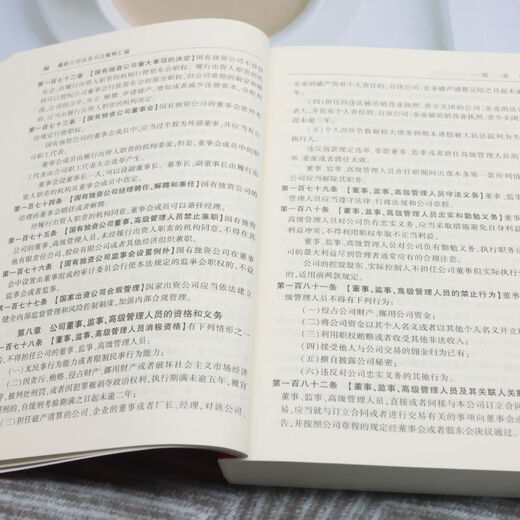 32 最新公司法及司法解释汇编
第一百七十二条 【国有独资公司重大事项的决定】国有独资公司不设股
东会,由履行出资人职责的机构行使股东会职权。履行出资人职责的机构可
以授权公司董事会行使股东会的部分职权,但公司章程的制定和
公司的合并、分立、解散、申请破产,增加或者减少注册资本,分配
利润,应当由履行出资人职责的机构决定。
第一百七十三条 【国有独资公司董事会】国有独资公司的董事会依照本
法规定行使职权。
国有独资公司的董事会成员中,应当过半数为外部董事,并应当有公
司职工代表。
董事会成员由履行出资人职责的机构委派;但是,董事会成员中的职
工代表由公司职工代表大会选举产生。
董事会设董事长一人,可以设副董事长。董事长、副董事长由履行出
资人职责的机构从董事会成员中指定。
第一百七十四条 【国有独资公司经理聘任、解聘和兼任】国有独资公司的
经理由董事会聘任或者解聘。
经履行出资人职责的机构同意,董事会成员可以兼任经理。
第一百七十五条 【国有独资公司董事、高级管理人员禁止兼职】国有独资
公司的董事、高级管理人员,未经履行出资人职责的机构同意,不得在其
他有限责任公司、股份有限公司或者其他经济组织兼职。
第一百七十六条 【国有独资公司监事会设置例外】国有独资公司在董事
会中设置由董事组成的审计委员会行使本法规定的监事会职权的,不设
监事会或者监事。
第一百七十七条 【国家出资公司合规管理】国家出资公司应当依法建立
健全内部监督管理和风险控制制度,加强内部合规管理。
第八章 公司董事、监事、高级管理人员的资格和义务
第一百七十八条 【董事、监事、高级管理人员消极资格】有下列情形之一
的,不得担任公司的董事、监事、高级管理人员:
(一)无民事行为能力或者限制民事行为能力;
(二)因贪污、贿赂、侵占财产、挪用财产或者破坏社会主义市场经济
秩序,被判处刑罚,或者因犯罪被剥夺政治权利,执行期满未逾五年,被宣
缓刑的,自缓刑考验期满之日起未逾二年;
(三)担任破产清算的公司、企业的董事或者厂长、经理,对该公司、
企业的破产负有个人责任的,自该公司、企业破产清算完结之日起未
逾三年;
(四)担任因违法被吊销营业执照、责令关闭的公司、企业的法定代
(五)个人因所负数额较大债务到期未清偿被人民法院列为失信
违反前款规定选举、委派董事、监事或者聘任高级管理人员的,
委派或者聘任无效。
董事、监事、高级管理人员在任职期间出现本条第一款所列情
第一百七十九条 【董事、监事、高级管理人员守法义务】董事、监
高级管理人员应当遵守法律、行政法规和公司章程。
第一百八十条 【董事、监事、高级管理人员忠实和勤勉义务】董事、
高级管理人员对公司负有忠实义务,应当采取措施避免自身利
利益冲突,不得利用职权牟取不正当利益。
董事、监事、高级管理人员对公司负有勤勉义务,执行职务应
司的最大利益尽到管理者通常应有的合理注意。
公司的控股股东、实际控制人不担任公司董事但实际执行
的,适用前两款规定。
第一百八十一条 【董事、监事、高级管理人员的禁止行为】董事
级管理人员不得有下列行为:
(一)侵占公司财产、挪用公司资金;
(二)将公司资金以其个人名义或者以其他个人名义开立账
(三)利用职权贿赂或者收受其他非法收入;
(四)接受他人与公司交易的佣金归为己有;
(五)擅自披露公司秘密;
(六)违反对公司忠实义务的其他行为。
第一百八十二条 【董事、监事、高级管理人员及其关联人关联
董事、监事、高级管理人员,直接或者间接与本公司订立合同
易,应当就与订立合同或者进行交易有关的事项向董事会或
告,并按照公司章程的规定经董事会或者股东会决议通过。